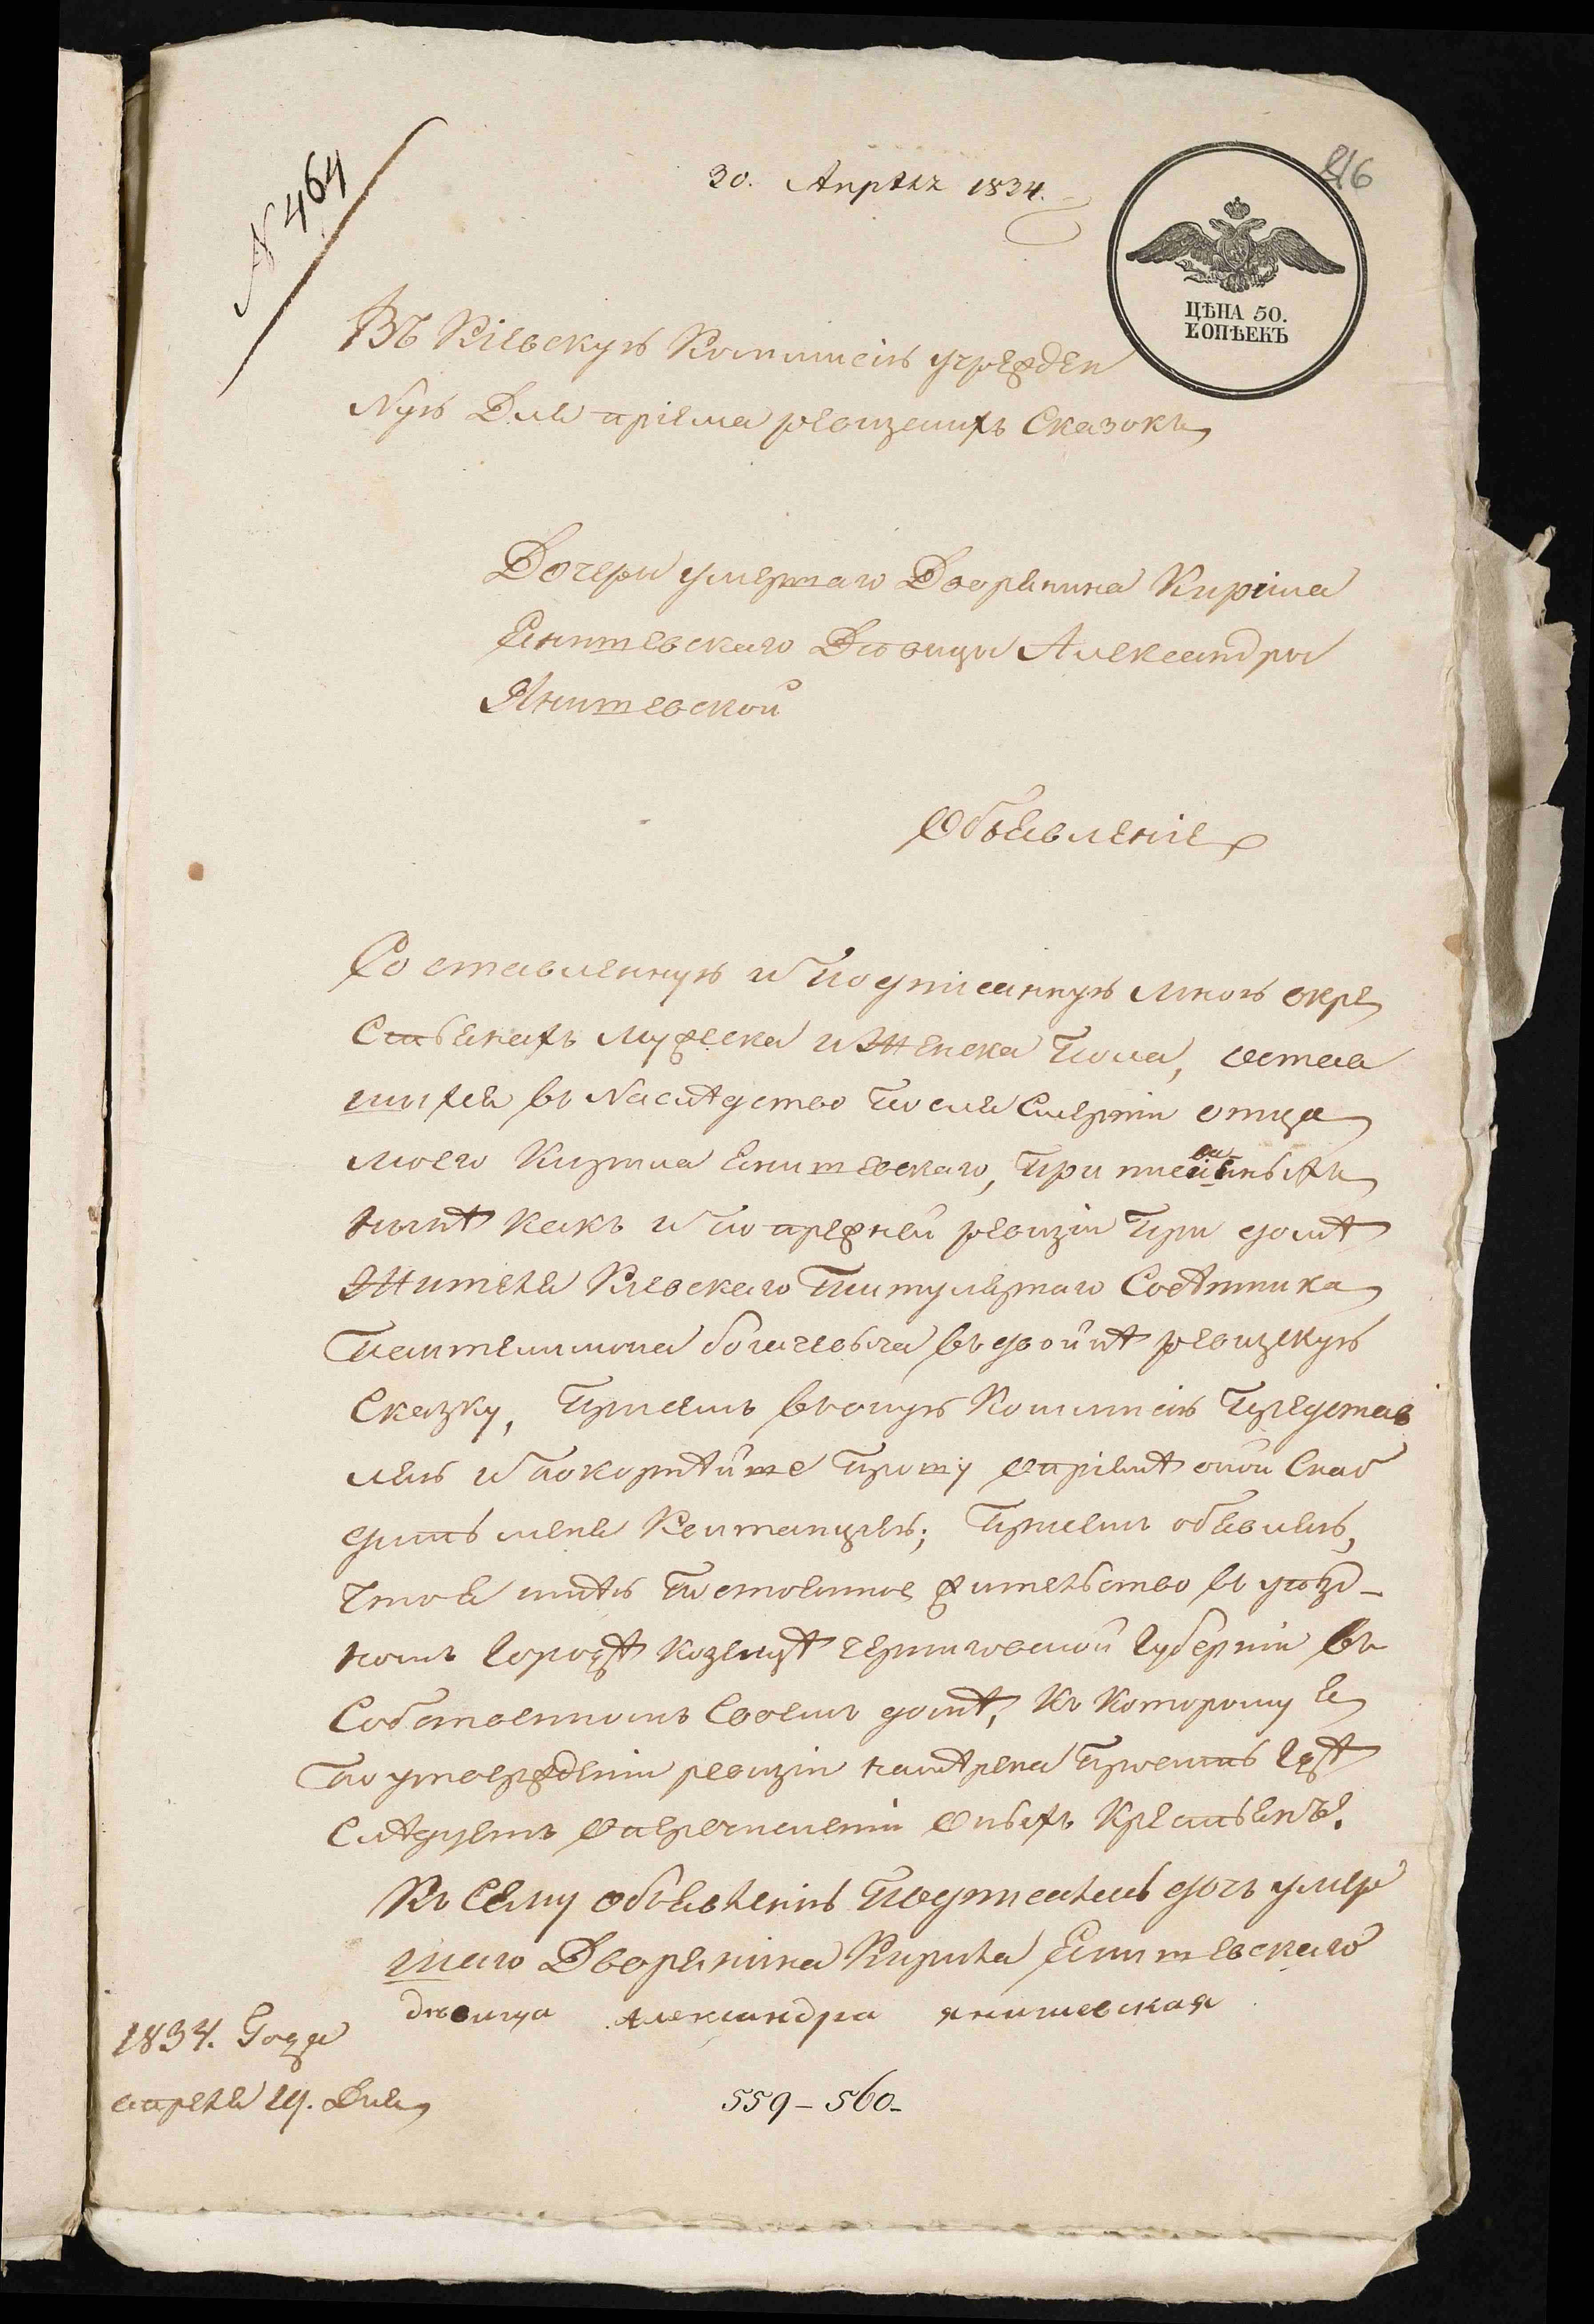 N 464
30. Апрѣля 1834.
216
ЦѢНА 50.
КОПѢЕКЪ
Въ Кіевскую Коммисію учрежден
ную Для пріема ревизскихъ Сказокъ
Дочери умершаго Дворянина Кирила
Янишевскаго Дѣвицы Александры
Янишевской
Объявленіе
Составленную и Подписанную мною окре
Стьянахъ мужеска и Женска Пола, остав
шихся въ Наслѣдство После Смерти отца
моего Кирила Янишевскаго, Приписаныхъ
ныне какъ и по прежней ревизіи При доме
Жителя Киевскаго Титулярнаго Советника
Пантелимона богачевыча въдвойне ревизскую
Сказку, Присемъ Въоную Коммисію Представ
ляю и Покорнѣйше Прошу опріеме оной Снаб
дить меня Квитанціею; Присемъ объявляю,
Что я имѣю Постоянное жительство въ уѣзд-
номъ Городѣ Козелцѣ Черниговской Губерніи въ
Собственномъ Своемъ домѣ, Къ Которому я
По утвержденіи ревизіи намѣрена Просить Где
Следуетъ оперечисленіи онЫхъ Крестьянъ.
Къ Сему объявленію Подписалась дочь умер
шаго Дворянина Кирила Янишевскаго
дѣвица Александра янишевская
1834. Года
апреля 19. Дня
559-560-